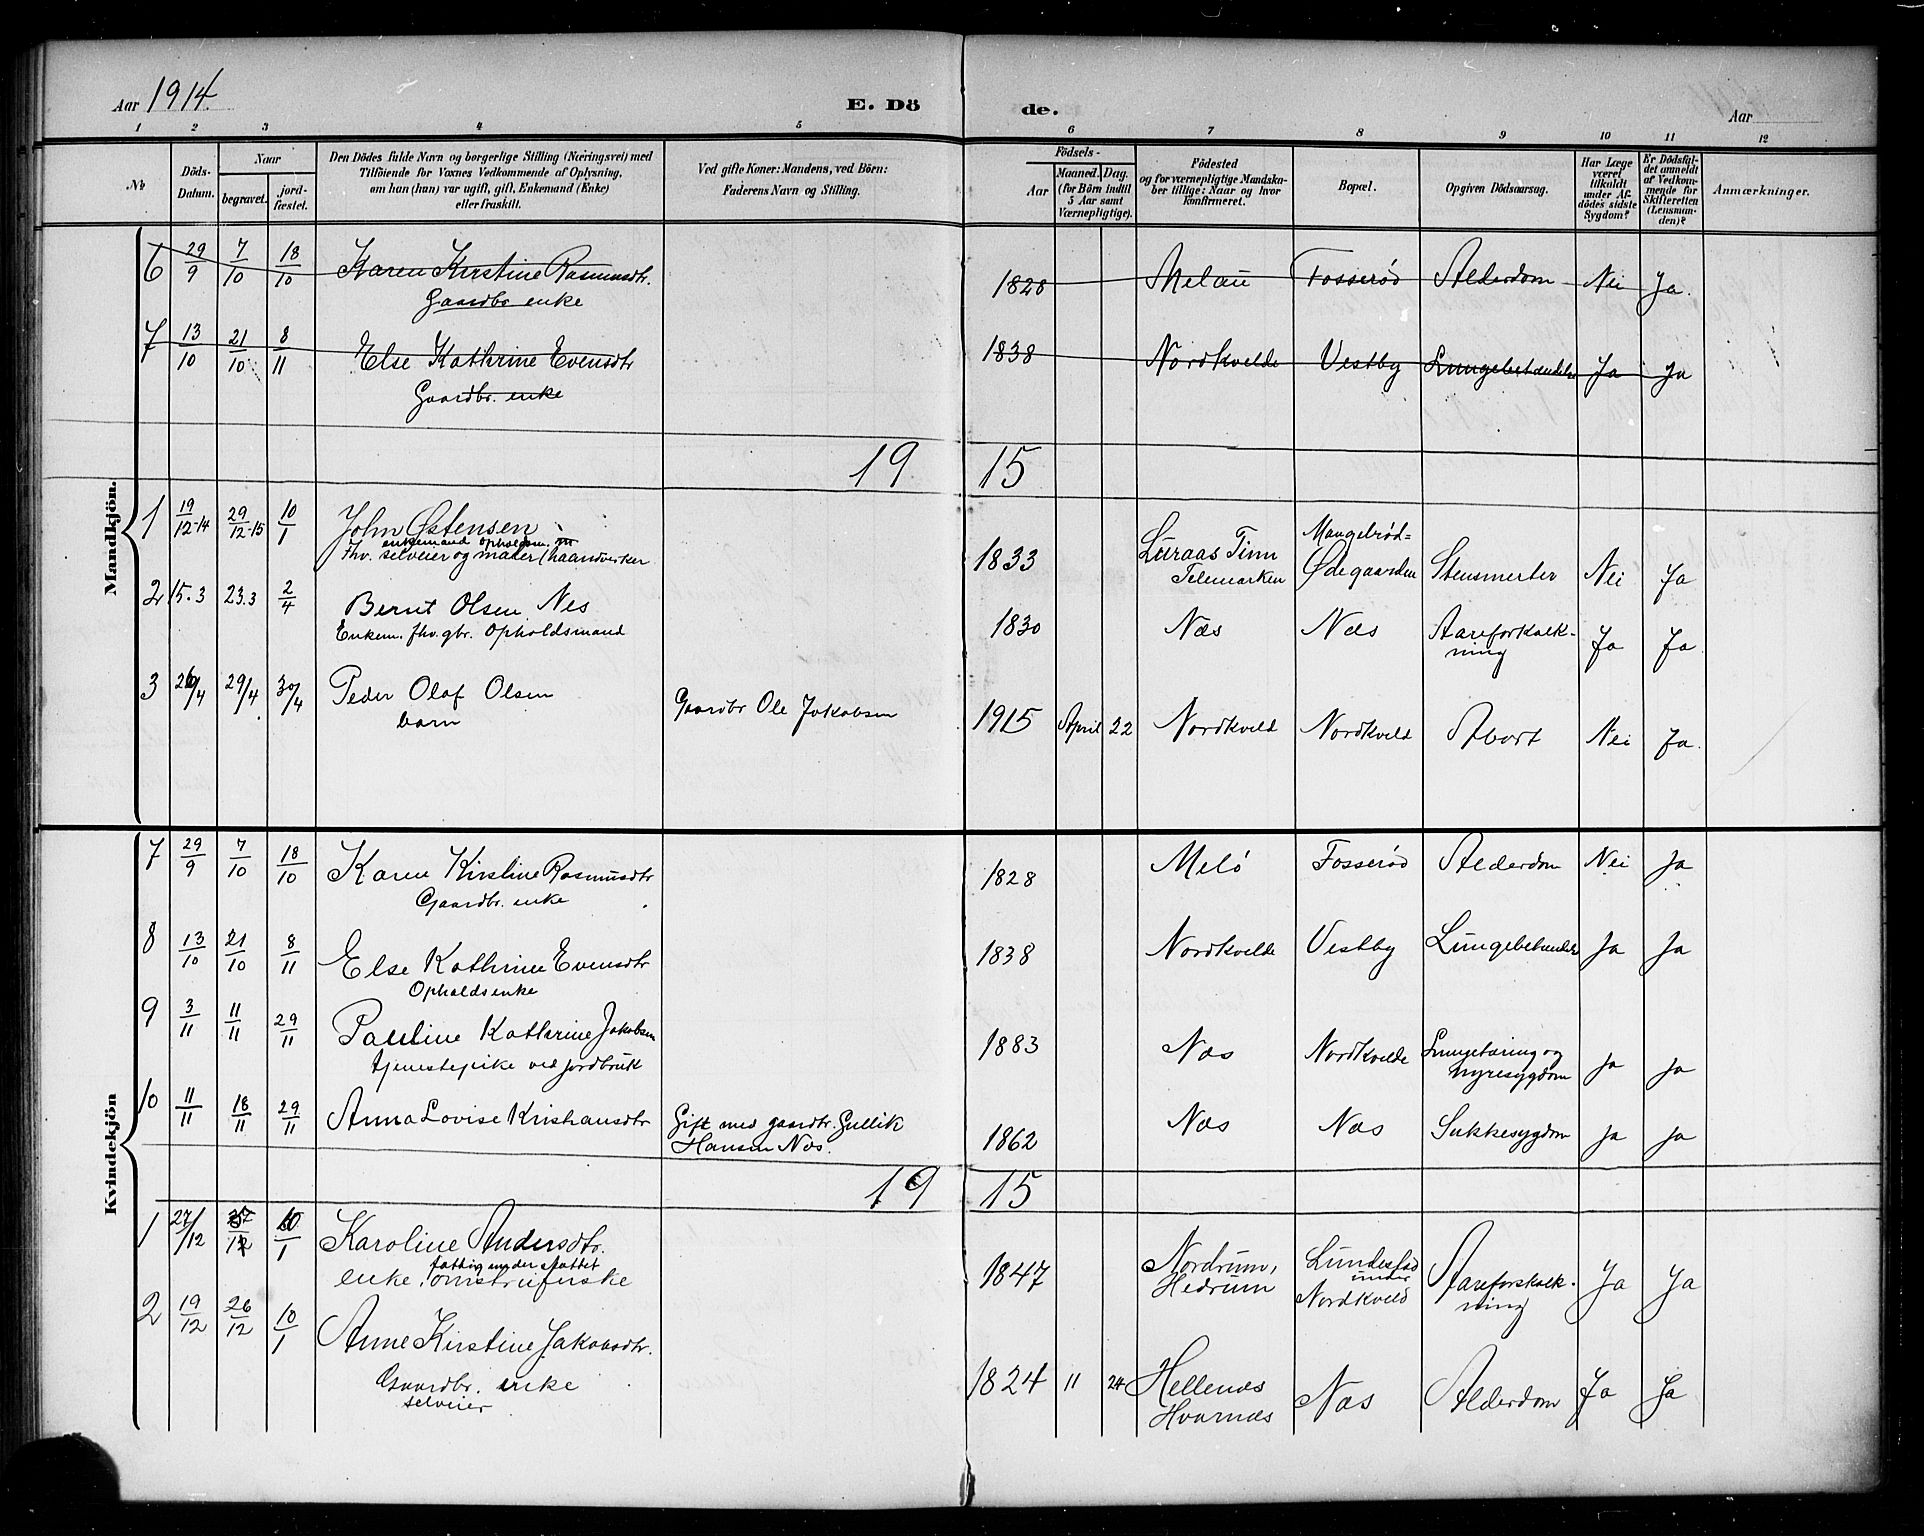 Aar 1914.
E. Dö
de.
Aar
1 2 3 4 5 6 7 8 9 10 11 12
No
Döds-
Datum.
Naar
begravet.
jord-
fæstet.
Den Dödes fulde Navn og borgerlige Stilling (Næringsvei) med
Tilföiende for Voxnes Vedkommende af Oplysning,
om han (hun) var ugift, gift, Enkemand (Enke)
eller fraskilt.
Ved gifte Koner: Mandens, ved Börn:
Faderens Navn og Stilling.
Födsels-
Aar
Maaned. Dag.
(for Börn indtil
5 Aar samt
Værnepligtige).
Födested
og for værnepligtige Mandska-
ber tillige: Naar og hvor
konfirmeret.
Bopæl.
Opgiven Dödsaarsag.
Har Læge
været
tilkaldt
under Af-
dödes sidste
Sygdom?
Er Dödsfal-
det anmeldt
af Vedkom-
mende for
Skifteretten
(Lensman-
den)?
Anmærkninger.
Mandkjön.
6 29/9 7/10 18/10 Karen Kirstine Rasmusdtr. 1828 Melau Fosserød Alderdom Nei Ja.
Gaardbr enke
7 13/10 21/10 8/11 Else Kathrine Evensdtr 1838 Nordkvelde Vestby Lungebetændelse Ja Ja
Gaardbr. enke
19 15
1 19/12-14 29/12-15 10/1 John Østensen 1833 Luraas Tinn Telemarken Mangelrød= Ødegaarden Stensmerter Nei Ja
enkemand opholdsm.
fhv. selveier og maler (haandverker
2 15.3 23.3 2/4 Bernt Olsen Nes 1830 Næs Næs Aareforkalk-
ning Ja Ja
Enkem. fhv. gbr. Opholdsmand
3 26/4 29/4 30/4 Peder Olaf Olsen Gaardbr Ole Jakobsen 1915 April 22 Nordkveld Nordkveld Abort Nei Ja.
barn
Kvindekjön
7 29/9 7/10 18/10 Karen Kirstine Rasmusdtr 1828 Melö Fosserød Alderdom Nei Ja
Gaardbr. enke
8 13/10 21/10 8/11 Else Kathrine Evensdtr 1838 Nordkvelde Vestby Lungebetændelse Ja Ja
Opholdsenke
9 3/11 11/11 29/11 Pauline Katherine Jakobsen 1883 Næs Nordkvelde Lungetæring og
nyresygdom Ja Ja
tjenestepike ved jordbruk
10 11/11 18/11 29/11 Anna Lovise Kristiansdtr Gift med gaardbr. Gullik
Hansen Næs. 1862 Næs Næs Sukkesygdom Ja Ja
19 15
1 27/12 10/1 Karoline Andersdtr. 1847 Nordrum,
Hedrum Lundestad
under
Nordkveld Aareforskalk-
ning Ja Ja
fattigunderstøttet
enke,
2 19/12 26/12 10/1 Anne Kirstine Jakobsdtr. 1824 11 24 Hellenæs
Hvarnæs Næs Alderdom Ja Ja
Gaardbr. enke
selveier